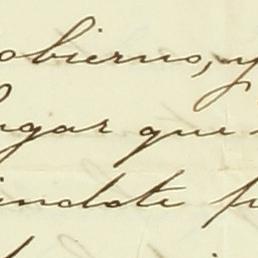 obierno, y
lugar que
indote p